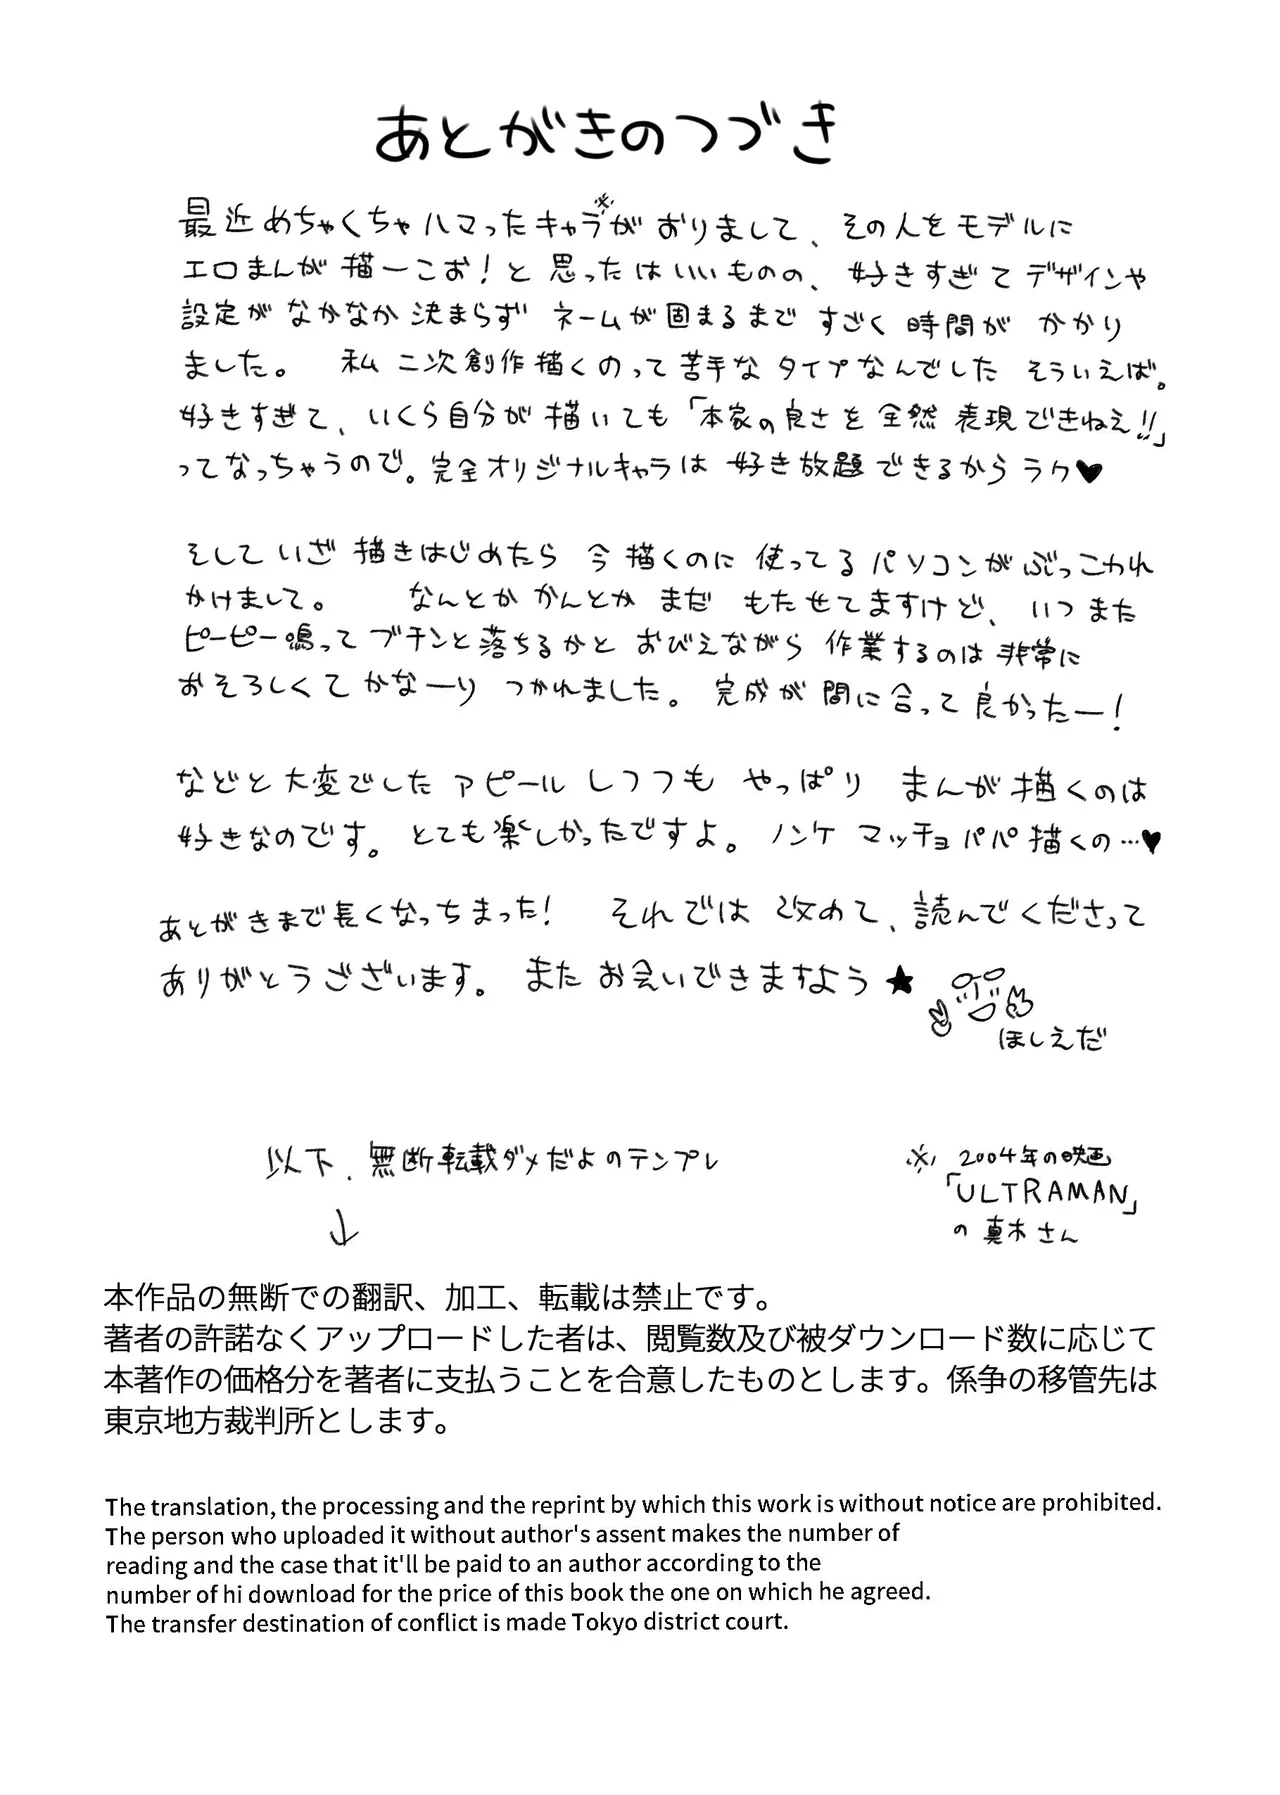 あとがきのつづき
最近めちゃくちゃハマったキャラ※がおりまして、その人をモデルに
エロまんが描ーこお!と思ったはいいものの、好きすぎてデザインや
設定がなかなか決まらずネームが固まるまですごく時間がかかり
ました。 私二次創作描くのって苦手なタイプなんでした そういえば。
好きすぎて、いくら自分が描いても「本家の良さを全然表現できねえ!!」
ってなっちゃうので。完全オリジナルキャラは好き放題できるからラク♥
そしていざ描きはじめたら今描くのに使ってるパソコンがぶっこわれ
かけまして。 なんとかかんとかまだもたせてますけど、いつまた
ピーピー鳴ってブチンと落ちるかとおびえながら作業するのは非常に
おそろしくてかなーりつかれました。完成が間に合って良かったー!
などと大変でしたアピールしつつもやっぱりまんが描くのは
好きなのです。とても楽しかったですよ。ノンケマッチョパパ描くの…♥
あとがきまで長くなっちまった! それでは改めて、読んでくださって
ありがとうございます。またお会いできますよう★
ほしえだ
以下、無断転載ダメだよのテンプレ
↓
※2004年の映画
「ULTRAMAN」
の真木さん
本作品の無断での翻訳、加工、転載は禁止です。
著者の許諾なくアップロードした者は、閲覧数及び被ダウンロード数に応じて
本著作の価格分を著者に支払うことを合意したものとします。係争の移管先は
東京地方裁判所とします。
The translation, the processing and the reprint by which this work is without notice are prohibited.
The person who uploaded it without author's assent makes the number of
reading and the case that it'll be paid to an author according to the
number of hi download for the price of this book the one on which he agreed.
The transfer destination of conflict is made Tokyo district court.